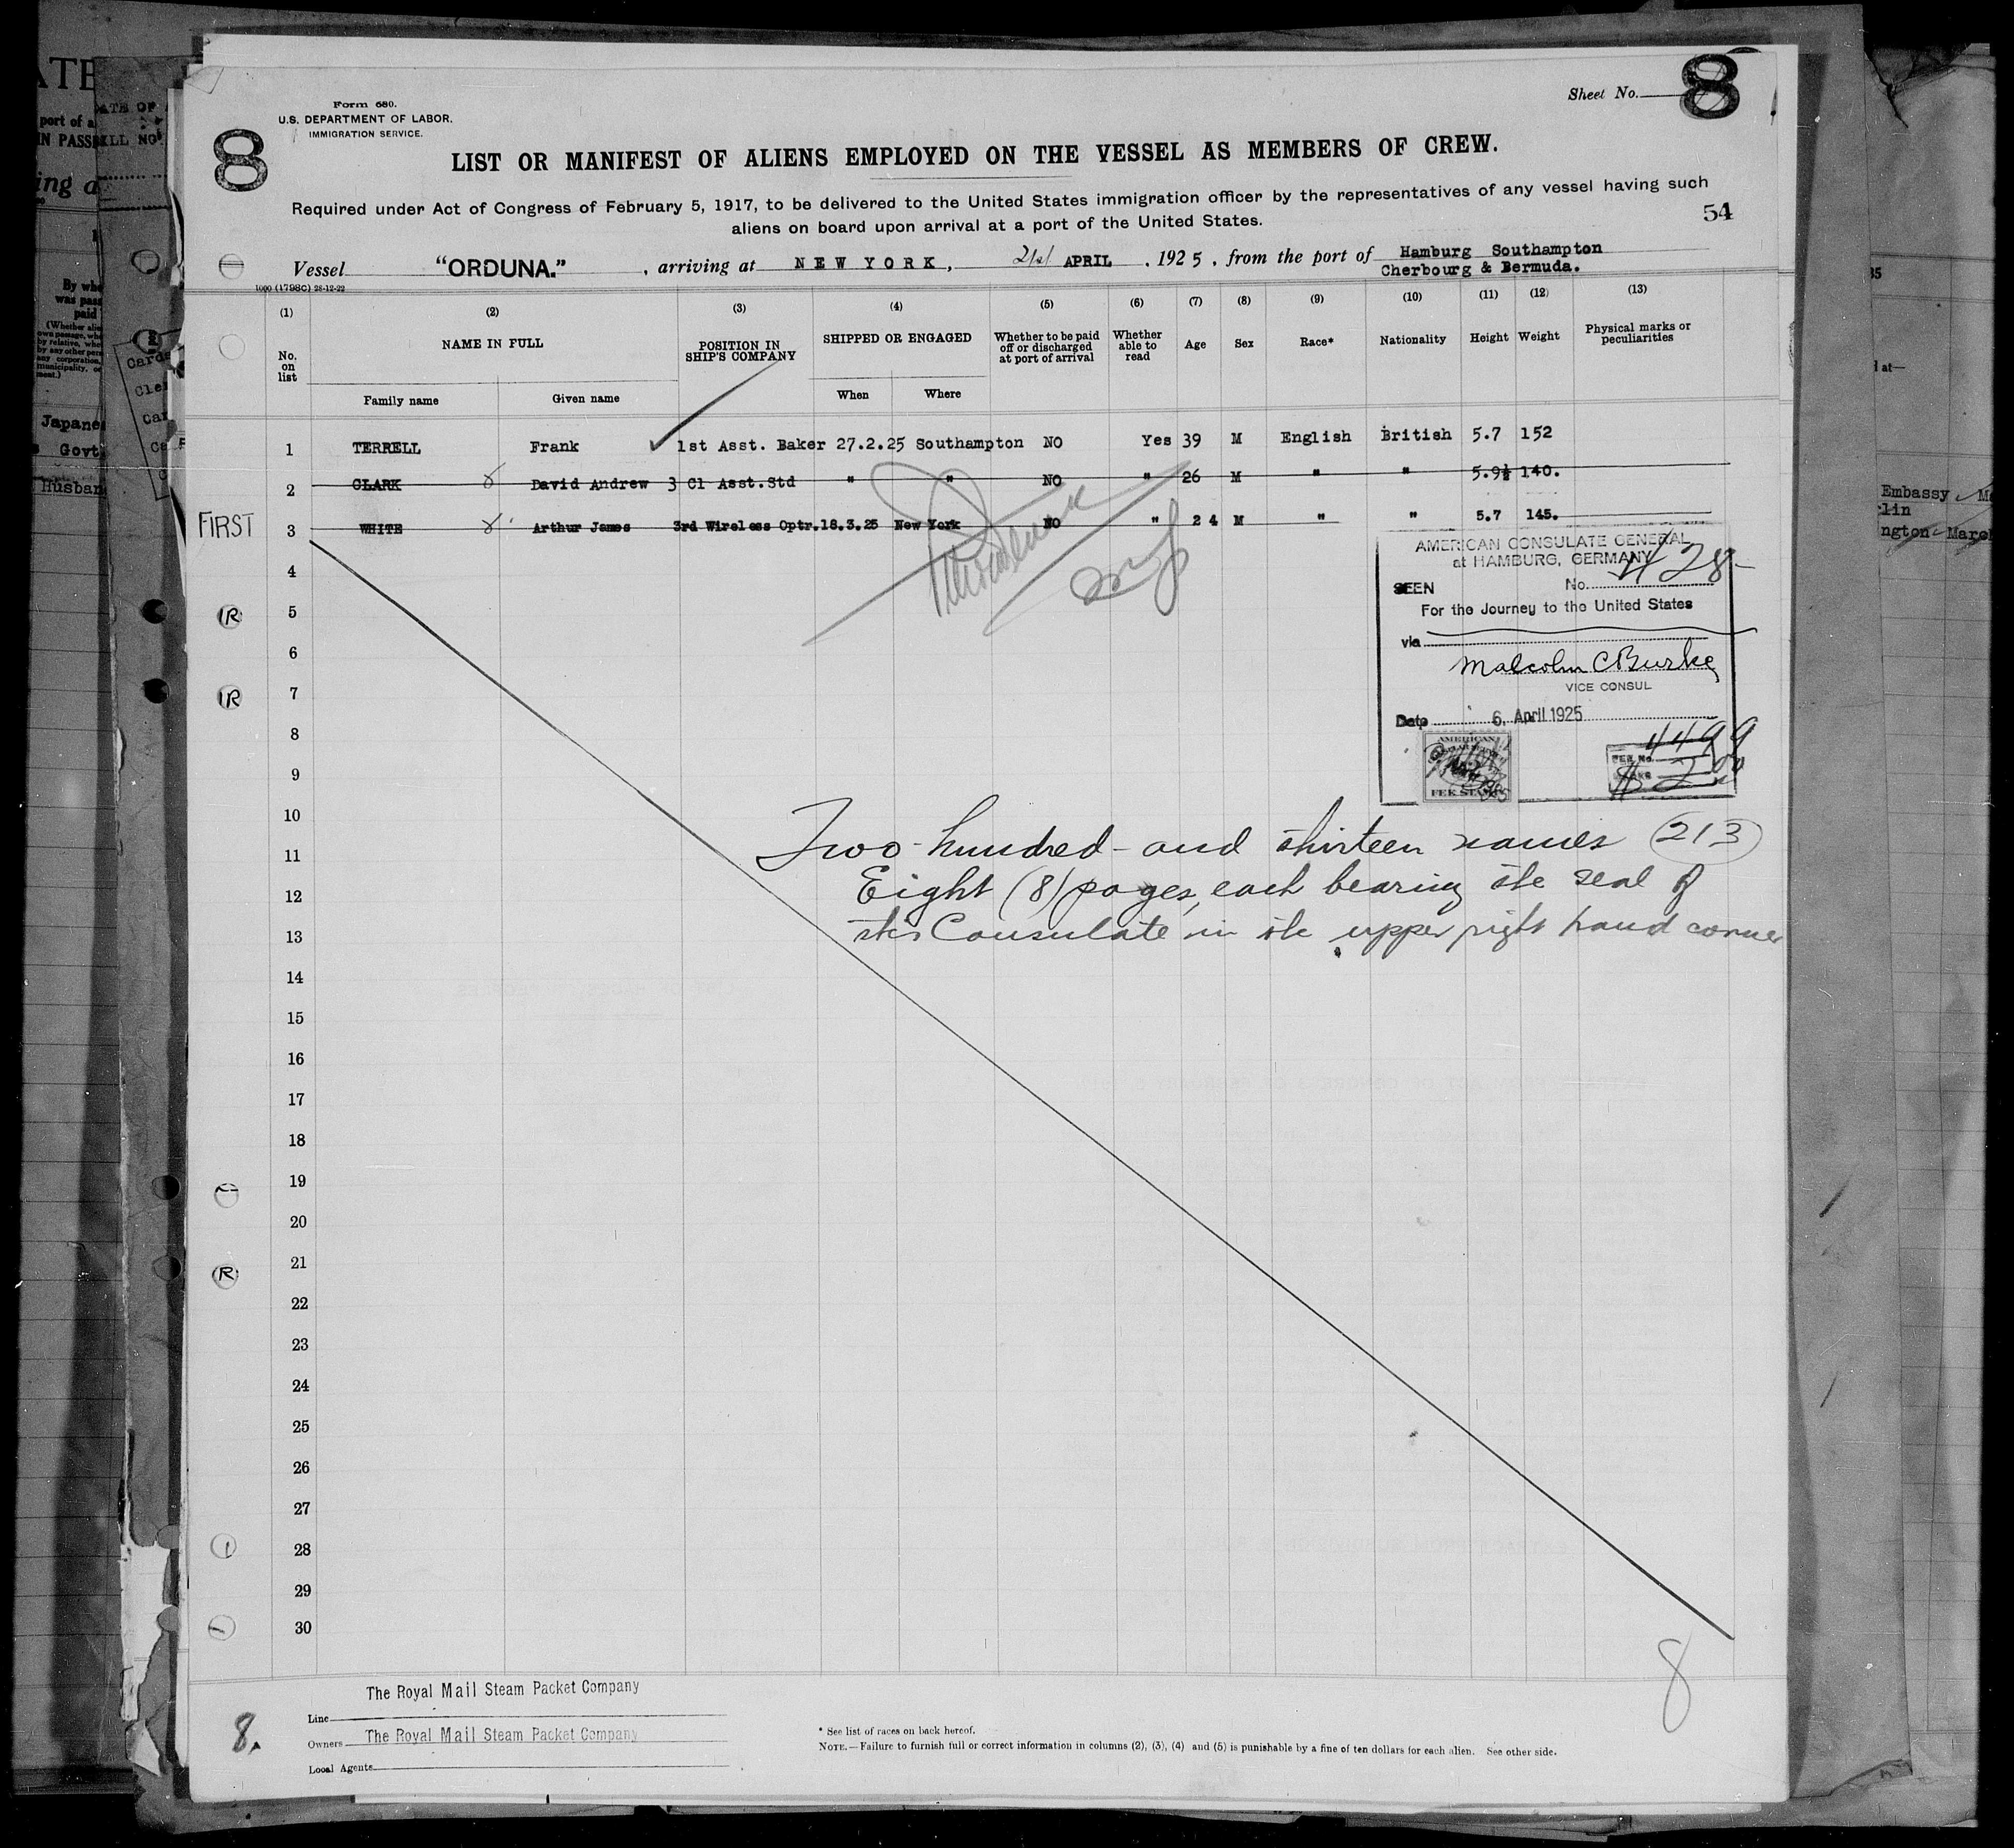 8
Form 680.
U.S. DEPARTMENT OF LABOR.
IMMIGRATION SERVICE.
Sheet No. 8
8
LIST OR MANIFEST OF ALIENS EMPLOYED ON THE VESSEL AS MEMBERS OF CREW.
Required under Act of Congress of February 5, 1917, to be delivered to the United States immigration officer by the representatives of any vessel having such
aliens on board upon arrival at a port of the United States.
54
Vessel "ORDUNA." , arriving at NEW YORK, 21st APRIL , 1925 , from the port of Hamburg Southampton
Cherbourg & Bermuda.
1000 (1798C) 28-12-22
(1) (2) (3) (4) (5) (6) (7) (8) (9) (10) (11) (12) (13)
No. on list NAME IN FULL POSITION IN SHIP'S COMPANY SHIPPED OR ENGAGED Whether to be paid off or discharged at port of arrival Whether able to read Age Sex Race* Nationality Height Weight Physical marks or peculiarities
Family name Given name When Where
1 TERRELL Frank 1st Asst. Baker 27.2.25 Southampton NO Yes 39 M English British 5.7 152
2 CLARK David Andrew 3 Cl Asst.Std " " NO " 26 M " " 5.9½ 140.
FIRST 3 WHITE Arthur James 3rd Wireless Optr. 18.3.25 New York NO " 24 M " " 5.7 145.
AMERICAN CONSULATE GENERAL
at HAMBURG, GERMANY
SEEN No. 428-
For the Journey to the United States
via
Malcolm C Burke
VICE CONSUL
Date 6. April 1925
AMERICAN
FEE STAMP
4499
FEE No.
4
5
R
6
7
R
8
9
10
11
12
13
Two-hundred-and thirteen names (213)
Eight (8) pages, each bearing the seal of
this Consulate in the upper right hand corner
14
15
16
17
18
19
20
21
R
22
23
24
25
26
27
28
29
30
8
The Royal Mail Steam Packet Company
Line
8.
Owners The Royal Mail Steam Packet Company
Local Agents
* See list of races on back hereof.
NOTE.—Failure to furnish full or correct information in columns (2), (3), (4) and (5) is punishable by a fine of ten dollars for each alien. See other side.
port of a
IN PASS
ing a
By whe
was pass
paid
Japane
Govt
Husban
Embassy
lin
ngton March